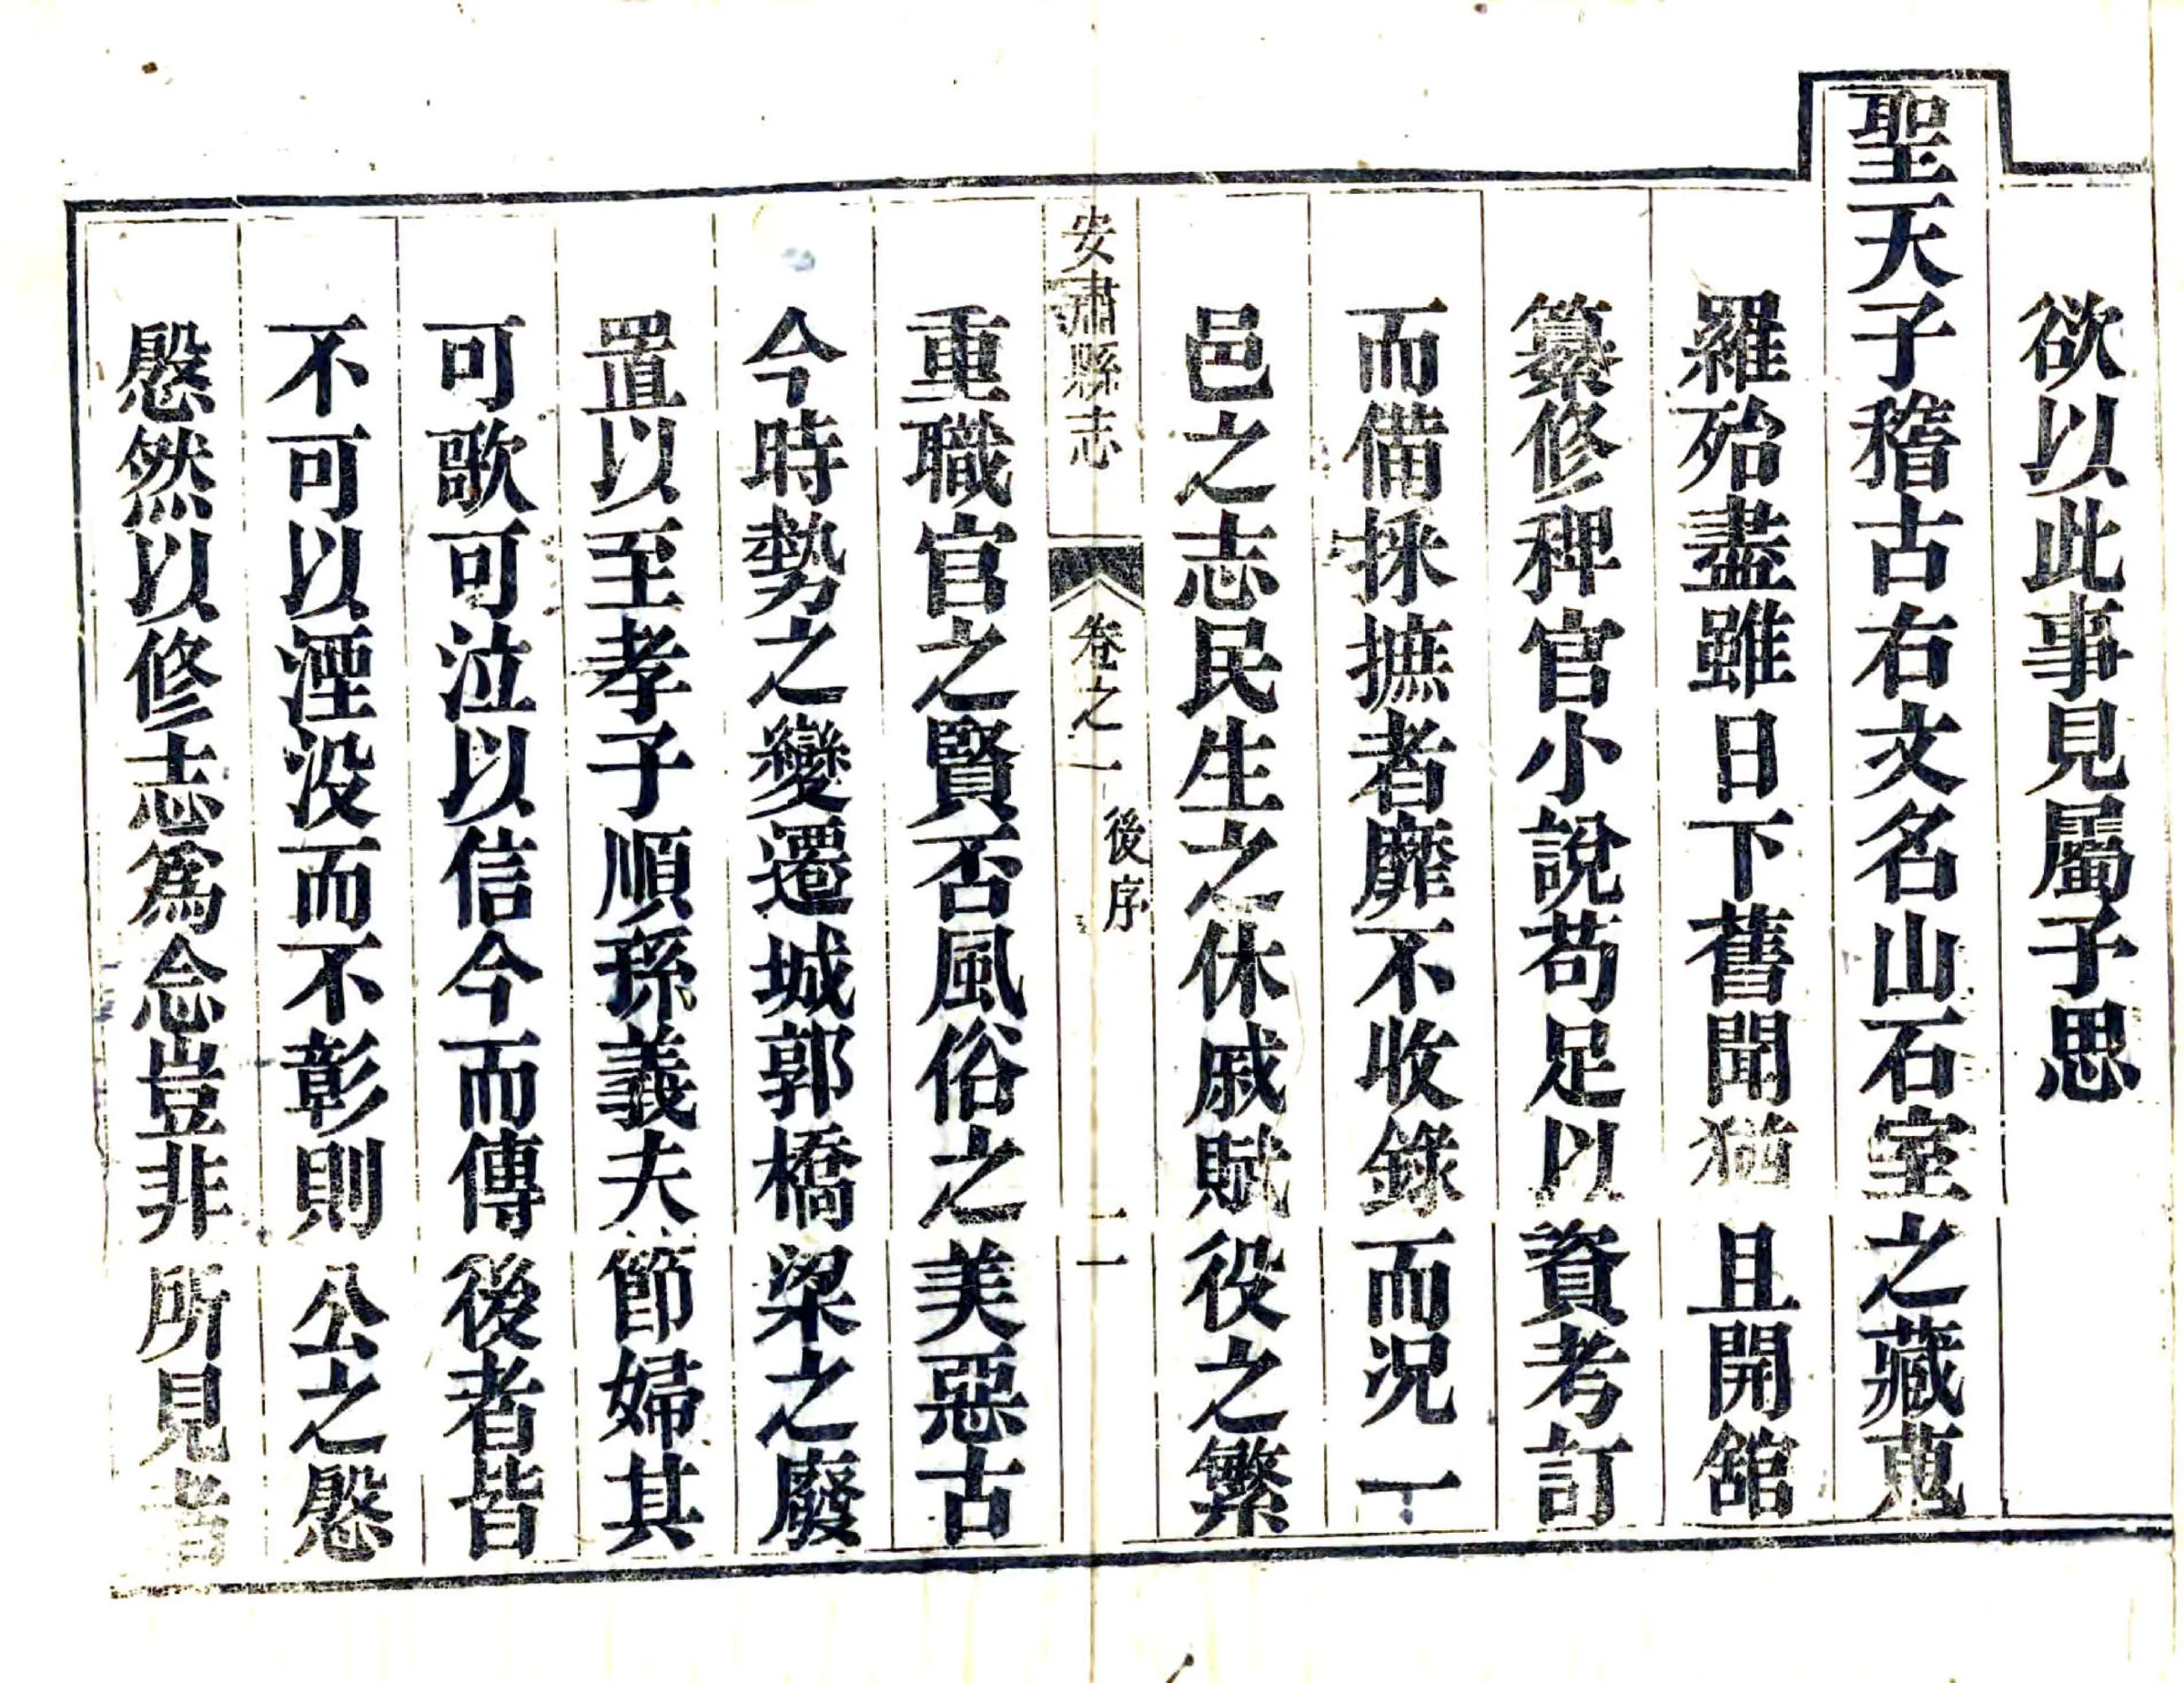 欲以此事見屬子思
聖天子稽古右文名山石室之藏蒐
羅殆盡雖日下舊聞猶且開舘
纂修稗官小說苟足以資考訂
而備採摭者靡不收錄而况一
邑之志民生之休戚賦役之繁
安肅縣志
卷之一
後序
二
重職官之賢否風俗之美惡古
今時勢之變遷城郭橋梁之廢
置以至孝子順孫義夫節婦其
可歌可泣以信今而傳後者皆
不可以湮没而不彰則公之慇
慇然以修志爲念豈非所見者